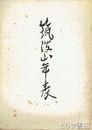 筑波山年表